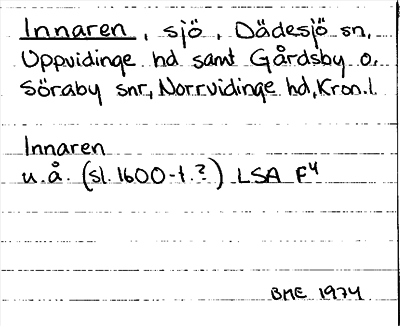 Innaren, sjö, Dädesjö sn,
Uppvidinge hd samt Gårdsby o.
Söraby snr, Norrvidinge hd, Kron.l.
Innaren
u.å. (sl. 1600-t.?) LSA F4
BME 1974